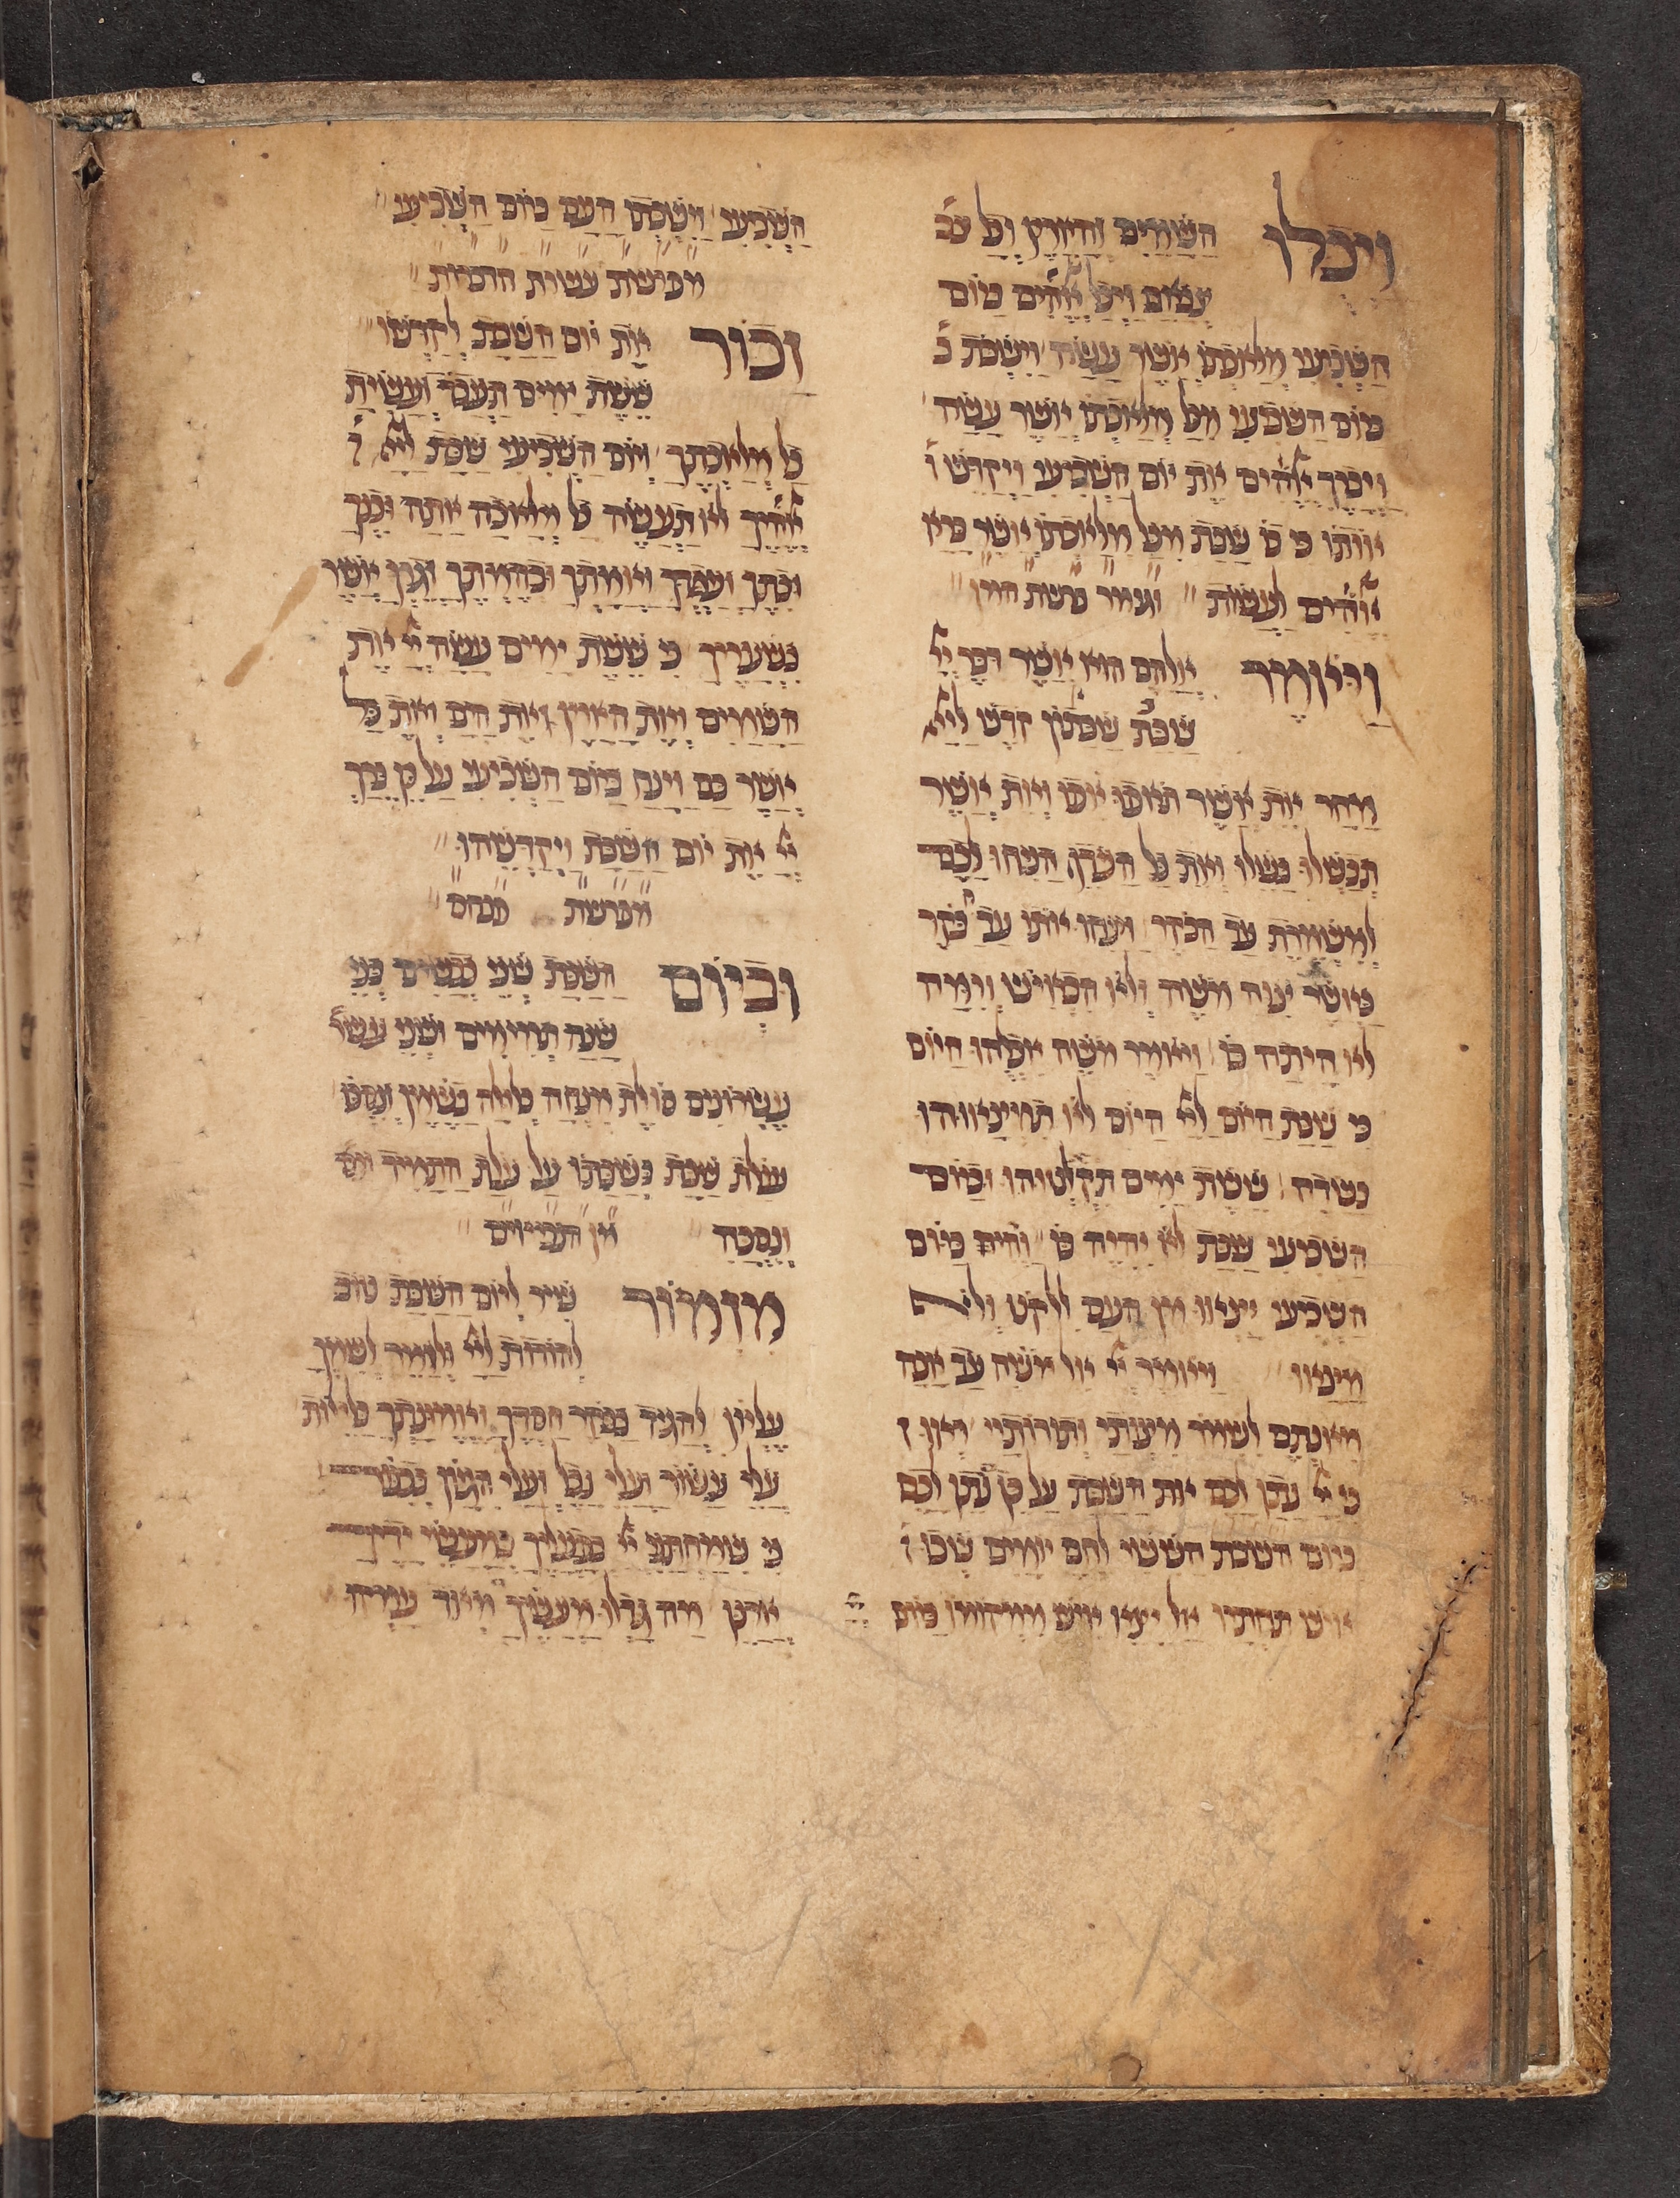 וַיְכֻלּוּ הַשָּׁמַיִם וְהָאָרֶץ וְכָל צב
צְבָאָם וַיְכַל אֱלֹהִים בַּיּוֹם
הַשְּׁבִיעִי מְלַאכְתּוֹ אֲשֶׁר עָשָׂה וַיִּשְׁבֹּת ב
בַּיּוֹם הַשְּׁבִיעִי מִכָּל מְלַאכְתּוֹ אֲשֶׁר עָשָׂה
וַיְבָרֶךְ אֱלֹהִים אֶת יוֹם הַשְּׁבִיעִי וַיְקַדֵּשׁ
אוֹתוֹ כִּי בוֹ שָׁבַת מִכָּל מְלַאכְתּוֹ אֲשֶׁר בָּרָא
אֱלֹהִים לַעֲשׂוֹת
וַיֹּאמֶר אֲלֵהֶם הוּא אֲשֶׁר דִּבֶּר יְיָ
שַׁבָּת שַׁבָּתוֹן קֹדֶשׁ לַייָ
מָחָר אֵת אֲשֶׁר תֹּאפוּ אֵפוּ וְאֵת אֲשֶׁר
תְּבַשְּׁלוּ בַּשֵּׁלוּ וְאֵת כָּל הָעֹדֵף הַנִּיחוּ לָכֶם
לְמִשְׁמֶרֶת עַד הַבֹּקֶר וַיַּנִּיחוּ אוֹתוֹ עַד בֹּקֶר
כַּאֲשֶׁר צִוָּה מֹשֶׁה וְלֹא הִבְאִישׁ וְרִמָּה
לֹא הָיְתָה בּוֹ וַיֹּאמֶר מֹשֶׁה אִכְלֻהוּ הַיּוֹם
כִּי שַׁבָּת הַיּוֹם לַייָ הַיּוֹם לֹא תִמְצָאוּהוּ
בַּשָּׂדֶה שֵׁשֶׁת יָמִים תִּלְקְטוּהוּ וּבַיּוֹם
הַשְּׁבִיעִי שַׁבָּת לֹא יִהְיֶה בּוֹ וַיְהִי בַּיּוֹם
הַשְּׁבִיעִי יָצְאוּ מִן הָעָם לִלְקֹט וְלֹא
מָצָאוּ וַיֹּאמֶר יְיָ אֶל מֹשֶׁה עַד אָנָה
מֵאַנְתֶּם לִשְׁמֹר מִצְוֹתַי וְתוֹרֹתָיי רְאוּ
כִּי יְיָ נָתַן לָכֶם אֶת הַשַּׁבָּת עַל כֵּן נֹתֵן לָכֶם
בַּיּוֹם הַשִּׁשִּׁי לֶחֶם יוֹמָיִם שְׁבוּ
אִישׁ תַּחְתָּיו אַל יֵצֵא אִישׁ מִמְּקוֹמוֹ בַּיּוֹם
הַשְּׁבִיעִי וַיִּשְׁבְּתוּ הָעָם בַּיּוֹם הַשְּׁבִיעִי
מפרשת עשרת הדברות
זָכוֹר אֶת יוֹם הַשַּׁבָּת לְקַדְּשׁוֹ
שֵׁשֶׁת יָמִים תַּעֲבֹד וְעָשִׂיתָ
כָּל מְלַאכְתֶּךָ וְיוֹם הַשְּׁבִיעִי שַׁבָּת לַייָ
אֱלֹהֶיךָ לֹא תַעֲשֶׂה כָל מְלָאכָה אַתָּה וּבִנְךָ
וּבִתֶּךָ וְעַבְדְּךָ וַאֲמָתְךָ וּבְהֶמְתֶּךָ וְגֵרְךָ אֲשֶׁר
בִּשְׁעָרֶיךָ כִּי שֵׁשֶׁת יָמִים עָשָׂה יְיָ אֶת
הַשָּׁמַיִם וְאֶת הָאָרֶץ וְאֶת הַיָּם וְאֶת כָּל
אֲשֶׁר בָּם וַיָּנַח בַּיּוֹם הַשְּׁבִיעִי עַל כֵּן בֵּרַךְ
יְיָ אֶת יוֹם הַשַּׁבָּת וַיְקַדְּשֵׁהוּ
מפרשת פנחס
וּבְיוֹם הַשַּׁבָּת שְׁנֵי כְבָשִׂים בְּנֵי
שָׁנָה תְּמִימִים וּשְׁנֵי עשר
עֶשְׂרוֹנִים סוֹלֶת מִנְחָה בְּלוּלָה בַשֶּׁמֶן וְנִסְכּוֹ
עֹלַת שַׁבַּת בְּשַׁבַּתּוֹ עַל עֹלַת הַתָּמִיד
וְנִסְכָּהּ
מִזְמוֹר שִׁיר לְיוֹם הַשַּׁבָּת טוֹב
לְהוֹדוֹת לַייָ וּלְזַמֵּר לְשִׁמְךָ
עֶלְיוֹן לְהַגִּיד בַּבֹּקֶר חַסְדֶּךָ וֶאֱמוּנָתְךָ בַּלֵּילוֹת
עֲלֵי עָשׂוֹר וַעֲלֵי נָבֶל וַעֲלֵי הִגָּיוֹן בְּכִנּוֹר
כִּי שִׂמַּחְתַּנִי יְיָ בְּפָעֳלֶךָ בְּמַעֲשֵׂי יָדֶיךָ
אֲרַנֵּן מַה גָּדְלוּ מַעֲשֶׂיךָ מְאֹד עָמְקוּ